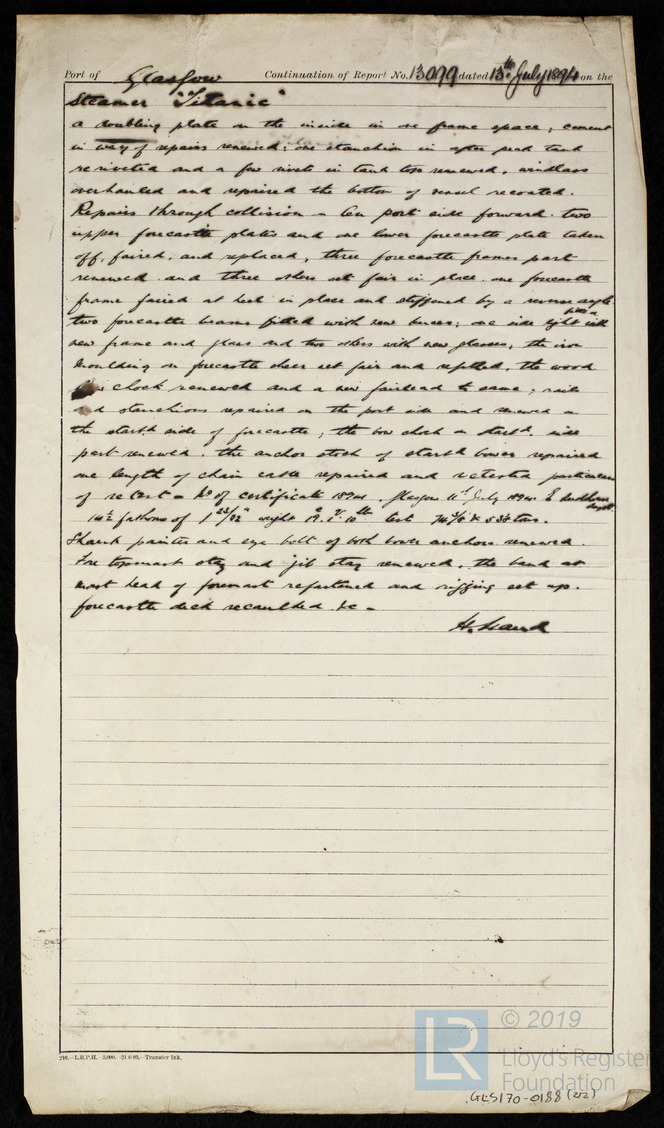 Port of Glasgow Continuation of Report No. 13099 dated 13th July 1894 on the
Steamer "Titanic"
a doubling plate on the inside in one frame space; cement
in way of repairs renewed: one stanchion in after peak tank
reriveted and a few rivets in tank top renewed, windlass
overhauled and repaired the bottom of vessel recoated.
Repairs through collision on port side forward. two
upper forecastle plates and one lower forecastle plate taken
off, faired, and replaced, three forecastle frames part
renewed and three others set fair in place one forecastle
frame faired at heel in place and stiffened by a reverse angle
two forecastle beams fitted with new knees; one side light fitted with
new frame and glass and two others with new glasses, the iron
moulding on forecastle sheer set fair and refitted, the wood
chock renewed and a new fairlead to same; rails
and stanchions repaired on the port side and renewed on
the starbd side of forecastle; the bow chock on starbd side
part renewed. the anchor stock of starbd bower repaired
one length of chain cable repaired and retested particulars
of re test - No of certificate Glasgow 11th July 1894
14½ fathoms of 1 22/32" weight test tons.
Shank painter and eye bolt of both bower anchors renewed.
Fore topmast stay and jib stay renewed, the band at
mast head of foremast refastened and rigging set up.
forecastle deck recaulked &c -
210.—L.R.P.H. Transfer Ink.
LR © 2019
Lloyd's Register
Foundation
GLS170-0188 (2/2)